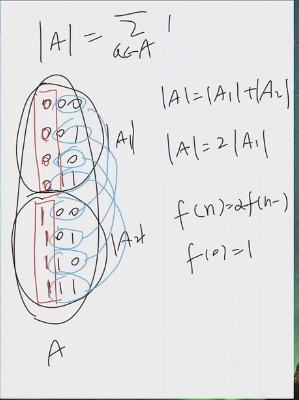 |A| = Σ 1
a∈A
000
001
010
011
|A1|
100
101
110
111
|A2|
A
|A|=|A1|+|A2|
|A|=2|A1|
f(n)=2f(n-)
f(0)=1